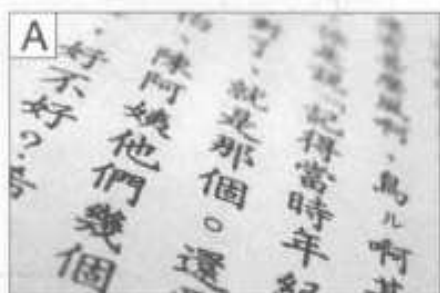 A
啊，鳥ㄦ啊
記得當時年紀
、就是那個。還
、陳阿姨他們幾個
，好不好？